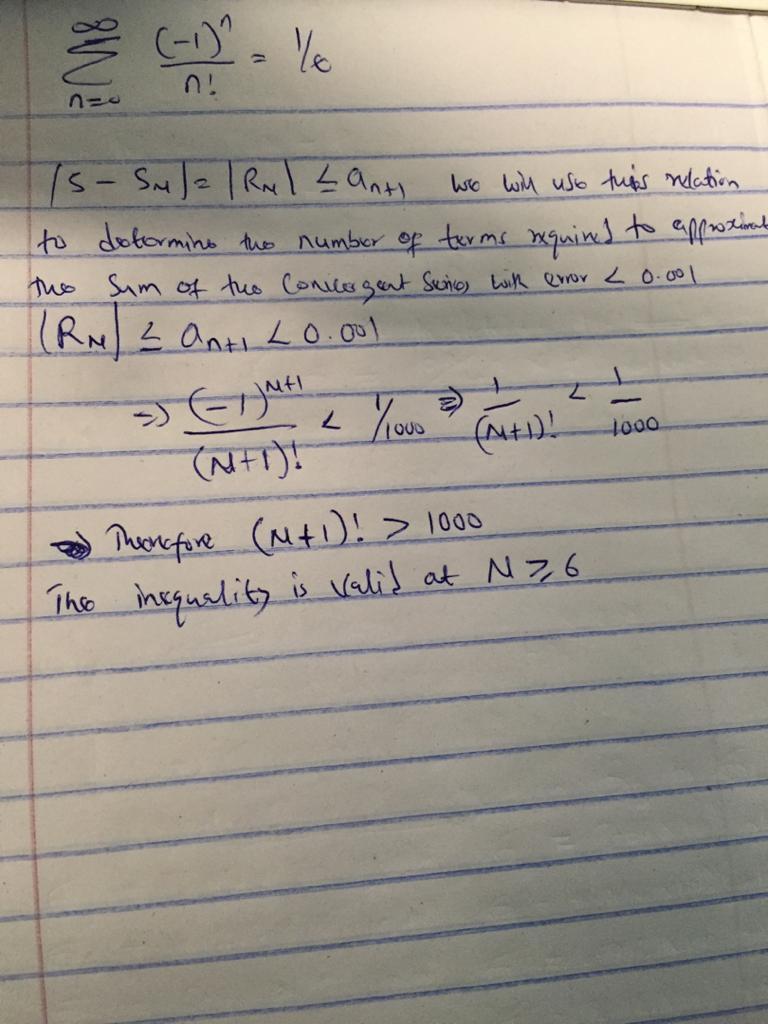 ∞
Σ (-1)ⁿ/n! = 1/e
n=0
|S - S_N| = |R_N| ≤ a_{n+1} we will use this relation
to determine the number of terms required to approximat
the sum of the Convergent Series with error < 0.001
|R_N| ≤ a_{n+1} < 0.001
⇒ (-1)^{N+1}/(N+1)! < 1/1000 ⇒ 1/(N+1)! < 1/1000
Therefore (N+1)! > 1000
The inequality is valid at N ≥ 6